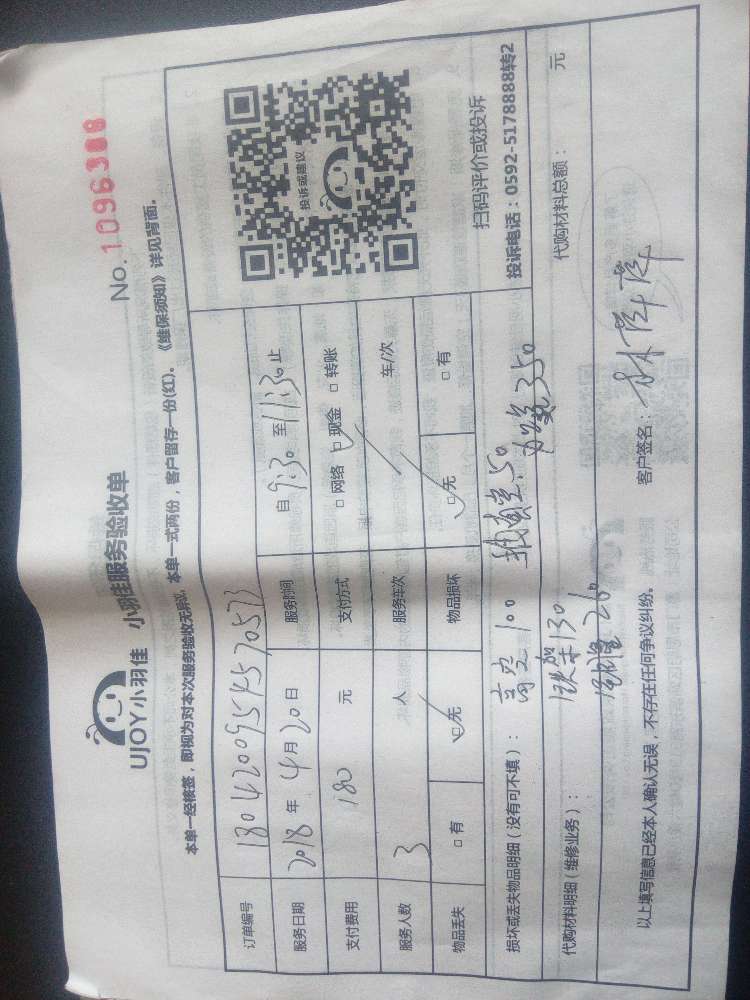 UJOY小羽佳 小羽佳服务验收单
No. 1096308
本单一经核签，即视为对本次服务验收无异议。本单一式两份，客户留存一份(红)。《维保须知》详见背面。
订单编号
服务日期 2018 年 4 月 20 日 服务时间 自 9:30 至 11:30 止
支付费用 180 元 支付方式 □ 网络 □ 现金 □ 转账
服务人数 3 人 服务车次 车/次
物品丢失 □ 有 □ 无 物品损坏 □ 无 □ 有
投诉或建议
扫码评价或投诉
投诉电话：0592-5178888转2
损坏或丢失物品明细（没有可不填）： 高空 100 50
代购材料明细（维修业务）： 铁架 130 350 代购材料总额： 元
以上填写信息已经本人确认无误，不存在任何争议纠纷。 客户签名：